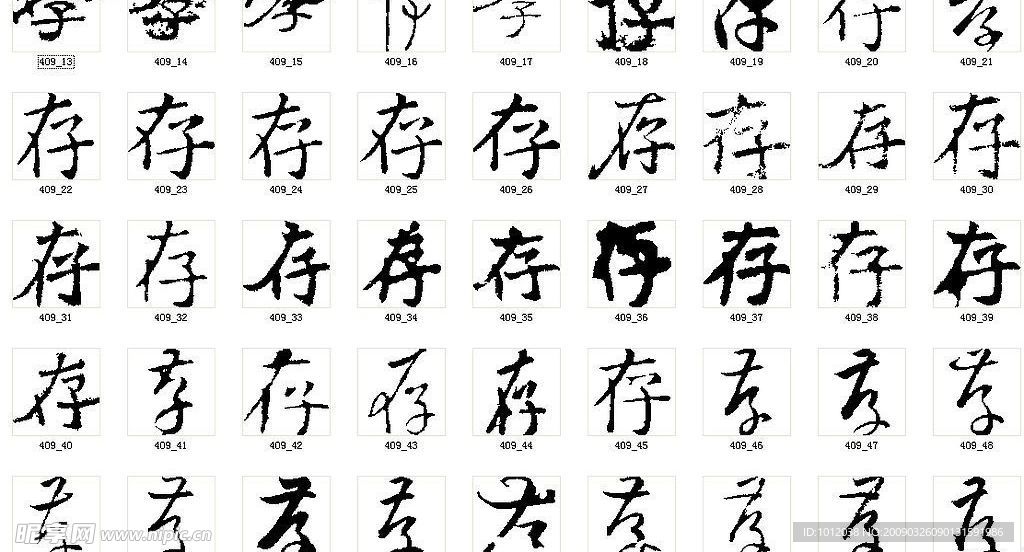 存 存 存 存 存 存 存 存 存
409_13 409_14 409_15 409_16 409_17 409_18 409_19 409_20 409_21
存 存 存 存 存 存 存 存 存
409_22 409_23 409_24 409_25 409_26 409_27 409_28 409_29 409_30
存 存 存 存 存 存 存 存 存
409_31 409_32 409_33 409_34 409_35 409_36 409_37 409_38 409_39
存 存 存 存 存 存 存 存 存
409_40 409_41 409_42 409_43 409_44 409_45 409_46 409_47 409_48
存 存 存 存 存 存 存 存 存
昵享网 www.nipic.cn